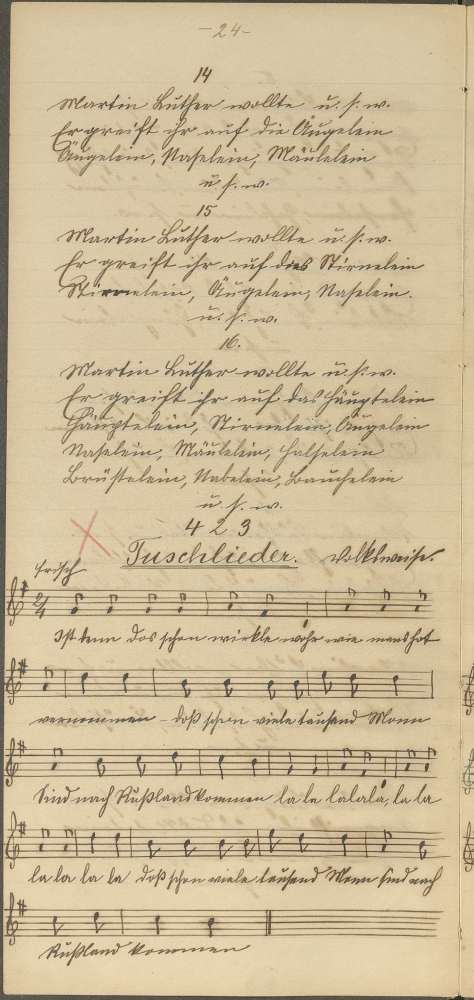 -24-
14
Martin Luther wollte u. s. w.
Er greift ihr auf die Äugelein
Äugelein, Naselein, Mäulelein
u. s. w.
15
Martin Luther wollte u. s. w.
Er greift ihr auf das Stirnelein
Stirnelein, Äugelein, Naselein.
u. s. w.
16.
Martin Luther wollte u. s. w.
Er greift ihr auf das Häuptelein
Häuptelein, Stirnelein, Äugelein
Naselein, Mäulelein, Halselein
Brüstelein, Nabelein, Bauchelein
u. s. w.
423
Tuschlieder. Volksweise.
Frisch
2/4
Ist denn das schon wirkle wohr wie mans hot
vernommen - doß schon viele tausend Monn
Sind nach Rußland kommen la la lalala, la la
la la la la doß schon viele tausend Monn sind nach
Rußland kommen